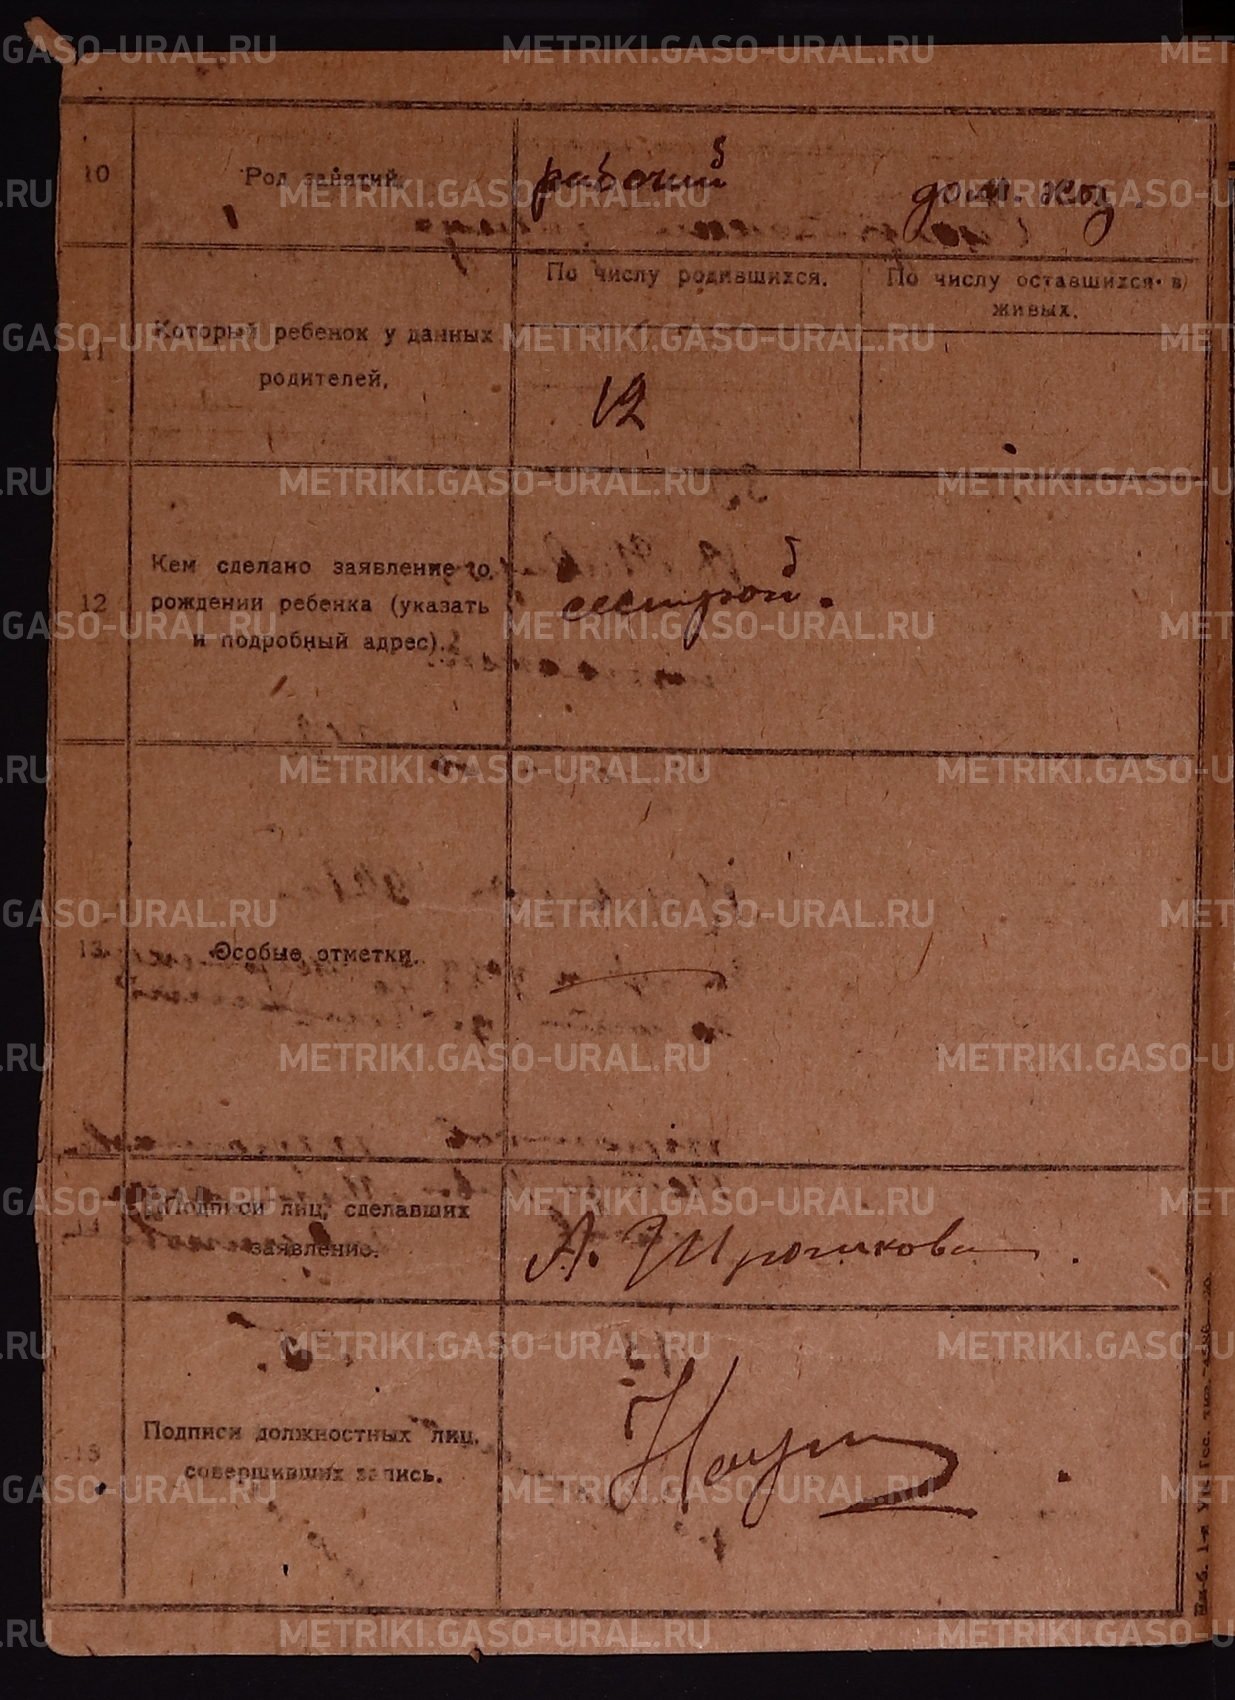 10
Род занятий.
рабочий
дом. хоз.
11
Который ребенок у данных
родителей.
По числу родившихся.
По числу оставшихся в
живых.
12
12
Кем сделано заявление о
рождении ребенка (указать
и подробный адрес).
сестрой.
13
Особые отметки.
14
Подписи лиц, сделавших
заявление.
А.
15
Подписи должностных лиц,
совершивших запись.
METRIKI.GASO-URAL.RU